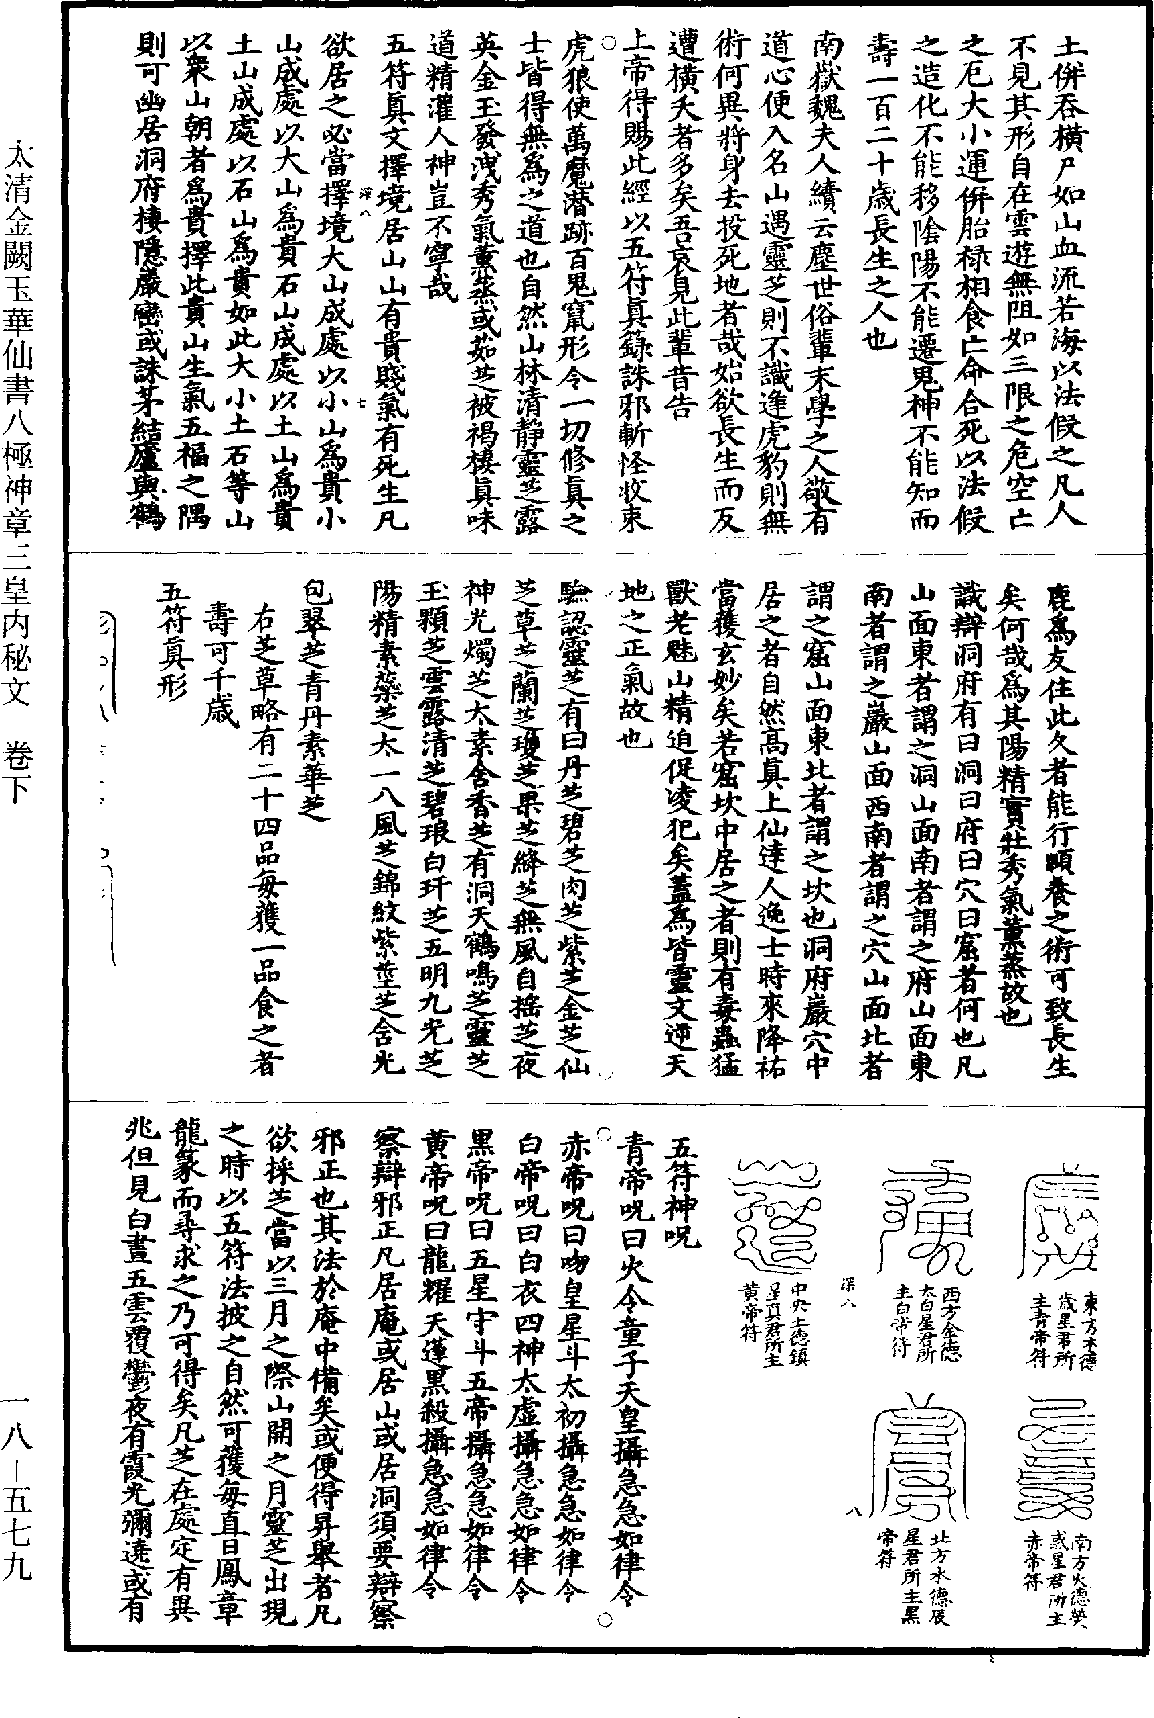 土併吞橫尸如山血流若海以法假之凡人
不見其形自在雲遊無阻如三限之危空亡
之厄大小運併胎祿相食亡命合死以法假
之造化不能移陰陽不能遷鬼神不能知而
壽一百二十歲長生之人也
南嶽魏夫人續云塵世俗輩末學之人敬有
道心便入名山遇靈芝則不識逢虎豹則無
術何異將身去投死地者哉始欲長生而反
遭橫夭者多矣吾哀見此輩昔告
上帝得賜此經以五符真籙誅邪斬怪收束
虎狼使萬魔潛跡百鬼竄形令一切修真之
士皆得無為之道也自然山林清靜靈芝露
英金玉發洩秀氣薰蒸或茹芝被褐棲真味
道精灌人神豈不寧哉
五符真文擇境居山山有貴賤氣有死生凡
欲居之必當擇境大山成處以小山為貴小
山成處以大山為貴石山成處以土山為貴
土山成處以石山為貴如此大小土石等山
以衆山朝者為貴擇此貴山生氣五福之隅
則可幽居洞府棲隱巖巒或誅茅結廬與鶴
鹿為友住此久者能行頤養之術可致長生
矣何哉為其陽精實壯秀氣薰蒸故也
識辯洞府有曰洞曰府曰穴曰窟者何也凡
山面東者謂之洞山面南者謂之府山面東
南者謂之巖山面西南者謂之穴山面北者
謂之窟山面東北者謂之坎也洞府巖穴中
居之者自然高真上仙達人逸士時來降祐
當獲玄妙矣若窟坎中居之者則有毒蟲猛
獸老魅山精迫促凌犯矣蓋為皆靈文逆天
地之正氣故也
驗認靈芝有曰丹芝碧芝肉芝紫芝金芝仙
芝草芝蘭芝瓊芝果芝絳芝無風自搖芝夜
神光燭芝太素含香芝有洞天鶴鳴芝靈芝
玉顆芝雲露清芝碧琅白玕芝五明九光芝
陽精素蘂芝太一八風芝錦紋紫莖芝含光
包翠芝青丹素華芝
右芝草略有二十四品每獲一品食之者
壽可千歲
五符真形
東方木德
歲星君所
主青帝符
南方火德熒
惑星君所主
赤帝符
西方金德
太白星君所
主白帝符
北方水德辰
星君所主黑
帝符
中央土德鎮
星真君所主
黃帝符
深八
八
五符神呪
青帝呪曰火令童子天皇攝急急如律令
赤帝呪曰吻皇星斗太初攝急急如律令
白帝呪曰白衣四神太虛攝急急如律令
黑帝呪曰五星守斗五帝攝急急如律令
黃帝呪曰龍耀天蓬黑殺攝急急如律令
察辯邪正凡居庵或居山或居洞須要辯察
邪正也其法於庵中備矣或便得昇舉者凡
欲採芝當以三月之際山開之月靈芝出現
之時以五符法披之自然可獲每直日鳳章
龍篆而尋求之乃可得矣凡芝在處定有異
兆但見白晝五雲覆鬱夜有霞光彌遶或有
太清金闕玉華仙書八極神章三皇內秘文 卷下
一八—五七九